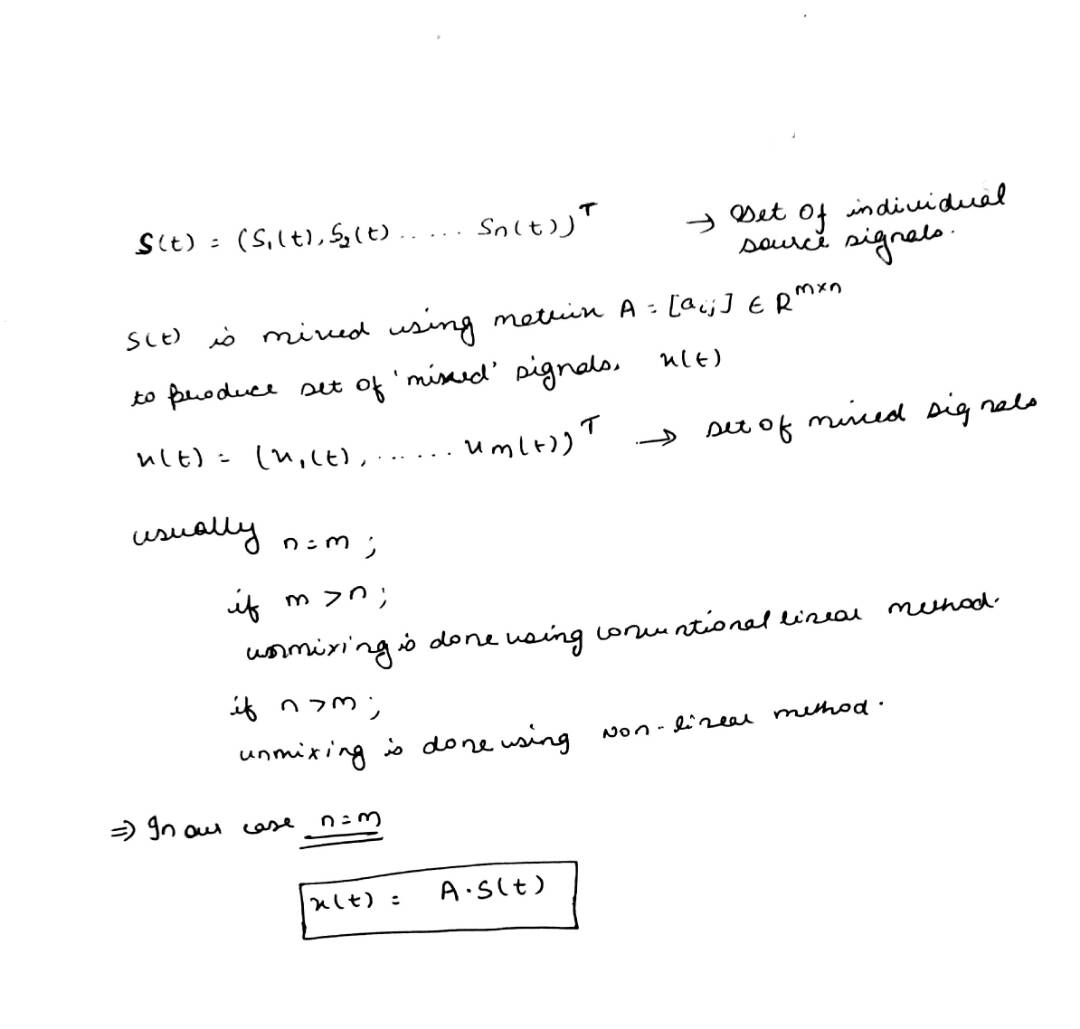 S(t) = (S₁(t), S₂(t) ..... Sn(t))ᵀ → Set of individual
source signals.
S(t) is mixed using matrix A = [aij] ∈ R^m×n
to produce set of 'mixed' signals, x(t)
x(t) = (x₁(t), ...... xm(t))ᵀ → set of mixed signals
usually n=m ;
if m>n ;
unmixing is done using conventional linear method.
if n>m ;
unmixing is done using Non-linear method.
⇒ In our case n=m
x(t) = A·S(t)